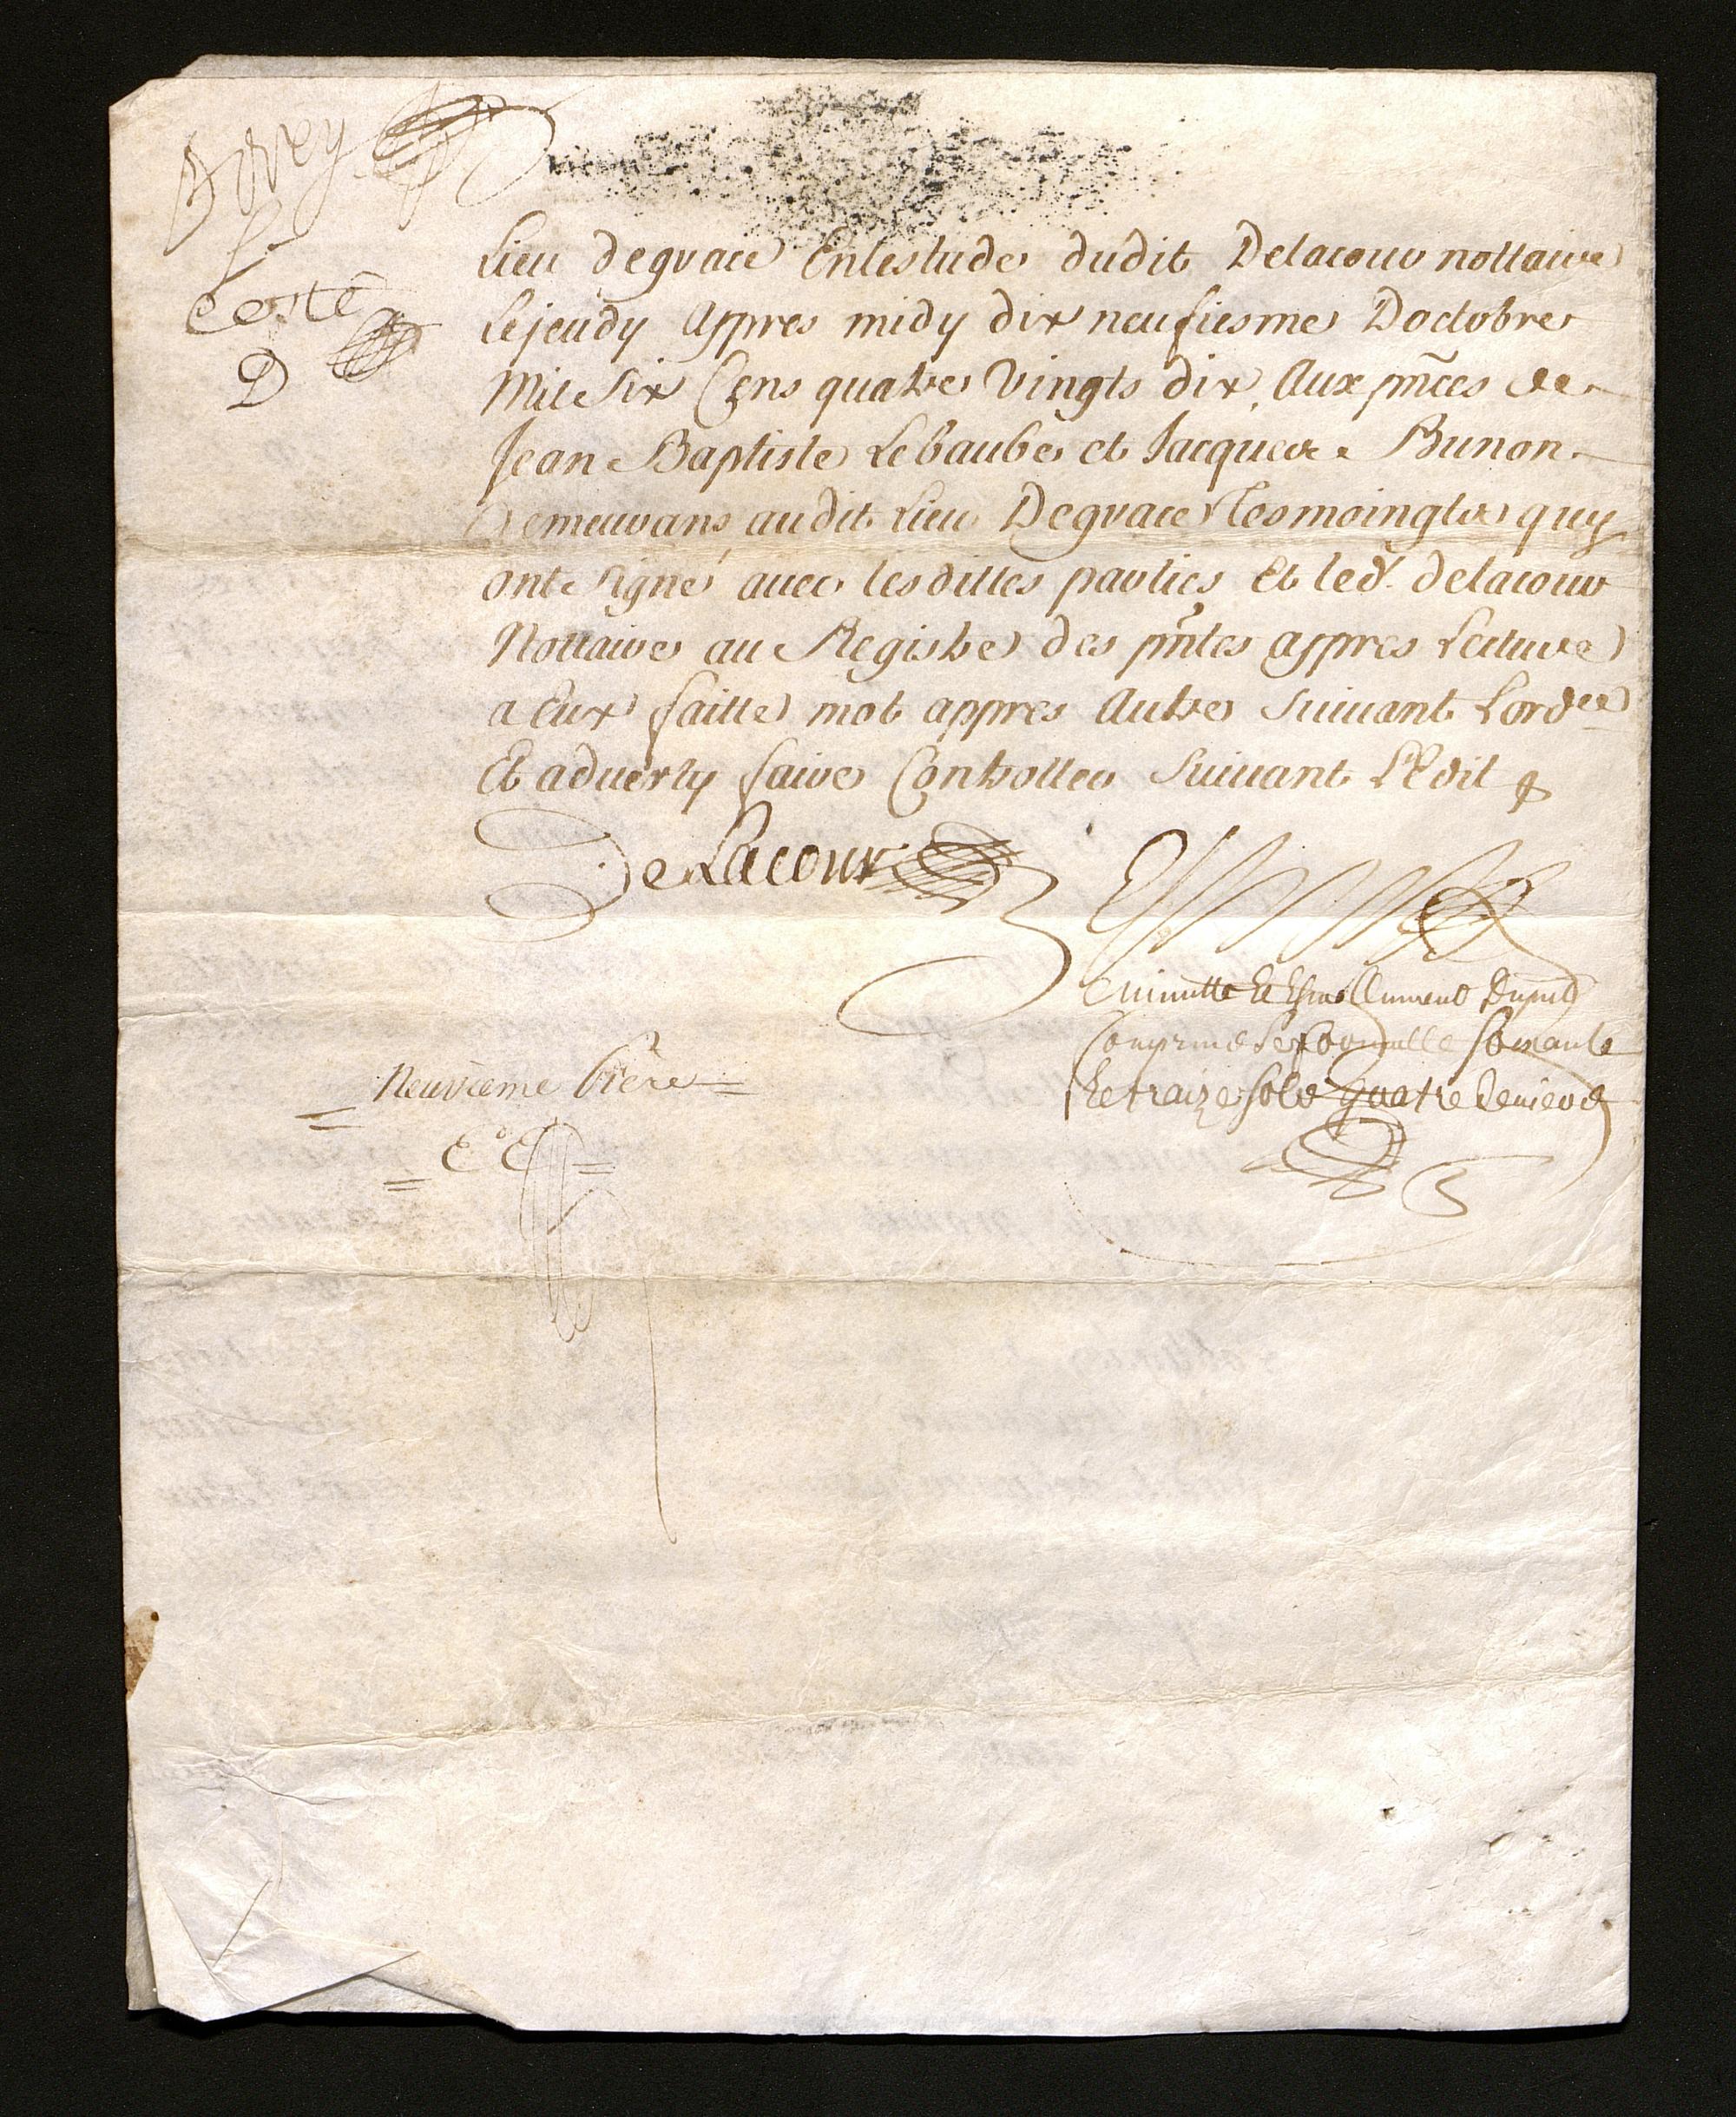 Coste
D
Lieu degrace Enlestude dudit Delacour nottaire
Lejeudy appres midy dix neufiesme Doctobre
Mil Six Cens quatre Vingts dix, Aux pñces de
Jean Baptiste Lebaube et Jacques Bunon
demeurans audit Lieu Degrace tesmoingts quy
ont signé auec lesdittes parties Et led. delacour
Nottaire au Registre des pñtes appres Lecture
a Eux faitte mot appres Autre suiuant Lord.ce
Et aduerty faire Controller suiuant L'Edit
DeLacour
minutte Et
Compris le soixante
Et traize sols quatre deniers
Neuvieme